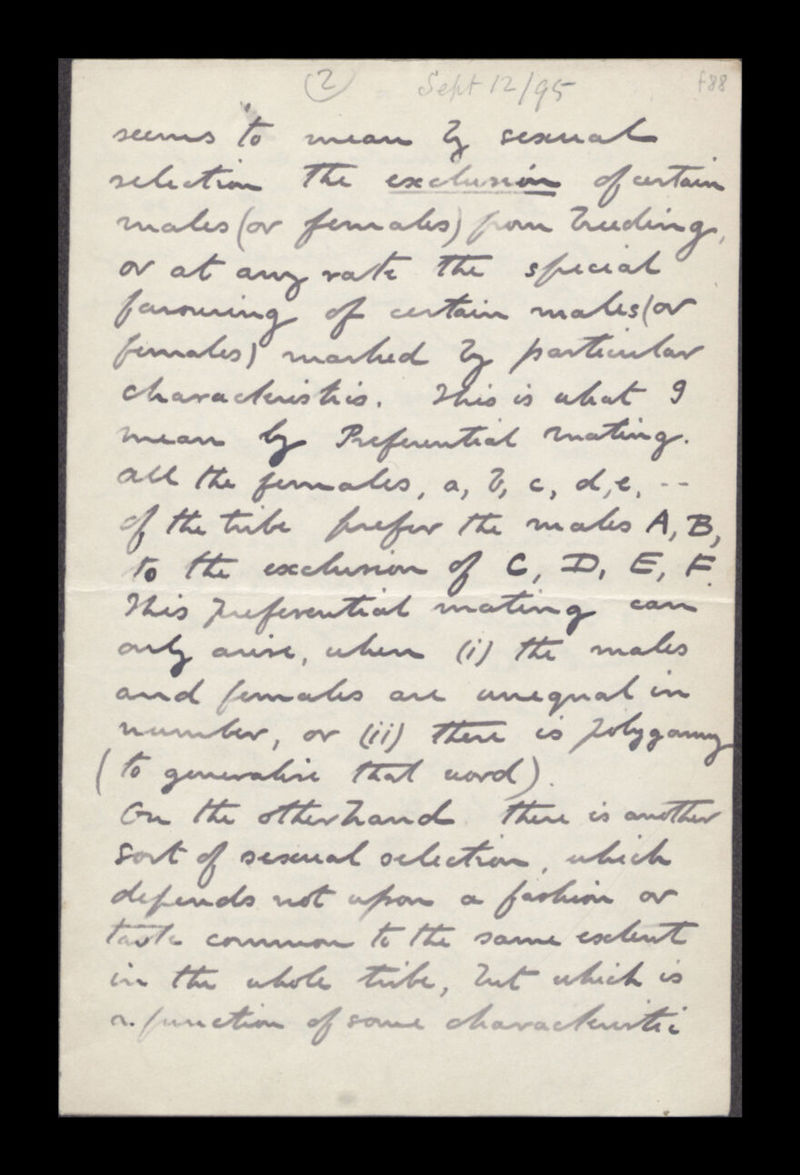 (2) Sept 12/95 f88
seems to mean by sexual
selection the exclusion of certain
males (or females) from breeding,
or at any rate the special
favouring of certain males (or
females) marked by particular
characteristics. This is what I
mean by Preferential mating.
All the females, a, b, c, d, e, --
of the tribe prefer the males A, B,
to the exclusion of C, D, E, F.
This preferential mating can
only arise, when (i) the males
and females are unequal in
number, or (ii) there is polygamy
(to generalise that word).
On the other hand there is another
sort of sexual selection, which
depends not upon a fashion or
taste common to the same extent
in the whole tribe, but which is
a function of some characteristic